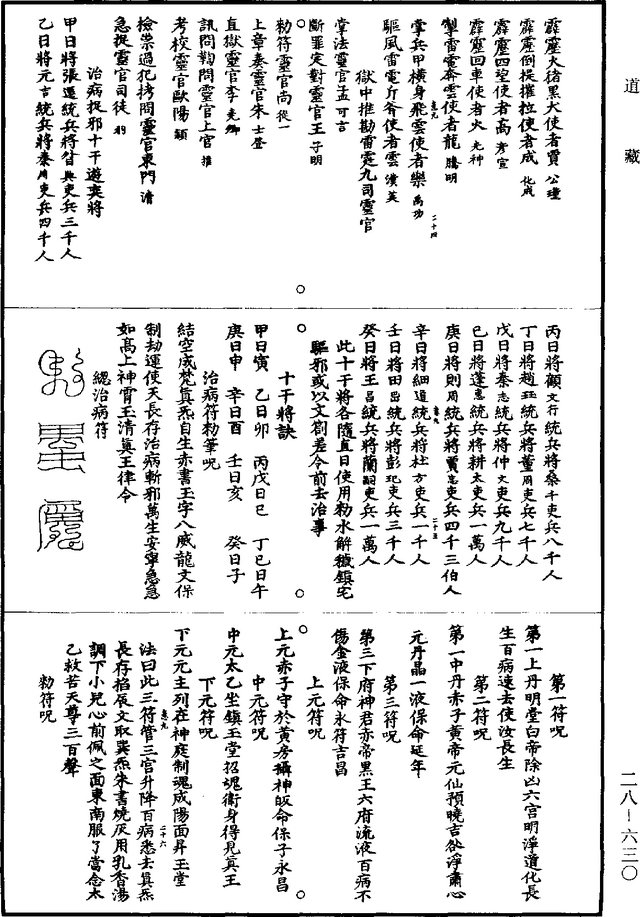 道藏
霹靂火猪黑犬使者賈公瓊
霹靂倒提摧拉使者成化成
霹靂四望使者高彥宣
霹靂回車使者火光神
掣雷電奔雲使者龍騰明
掌兵甲橫身飛雲使者樂禹功
驅風雷電斤斧使者雲漢英
獄中推勘雷霆九司靈官
掌法靈官孟可言
斷罪定對靈官王子明
勑符靈官尚從一
上章奏靈官朱士登
直獄靈官李克卿
訊問鞫問靈官上官雍
考校靈官歐陽穎
檢祟過犯拷問靈官東門清
急捉靈官司徒
治病捉邪十干遊奕將
甲日將張運統兵將昝興吏兵三千人
乙日將元吉統兵將秦用吏兵四千人
丙日將顧文行統兵將桑千吏兵八千人
丁日將趙珏統兵將董用吏兵七千人
戊日將秦志統兵將仲文吏兵九千人
巳日將蓬惠統兵將耕太吏兵一萬人
庚日將則周統兵將賈忠吏兵四千三伯人
辛日將細道統兵將杜方吏兵一千人
壬日將田㽵統兵將彭玘吏兵三千人
癸日將王㽵統兵將蘭嗣吏兵一萬人
此十干將各隨直日使用勑水解穢鎮宅
驅邪或以文劄差令前去治事
十干將訣
甲日寅 乙日卯 丙戊日巳 丁巳日午
庚日申 辛日酉 壬日亥 癸日子
治病符勑筆呪
結空成梵真炁自生赤書玉字八威龍文保
制劫運使天長存治病斬邪萬生安寧急急
如高上神霄玉清真王律令
總治病符
第一符呪
第一上丹明堂白帝除凶六宮明淨道化長
生百病速去使汝長生
第二符呪
第一中丹赤子黃帝元仙預曉吉欲淨肅心
元丹晶一液保命延年
第三符呪
第三下府神君赤帝黑王六府流液百病不
傷金液保命永符吉昌
上元符呪
上元赤子守於黃房攝神皈命保子永昌
中元符呪
中元太乙坐鎮玉堂招魂衛身得見真王
下元符呪
下元元主列在神庭制魂咸陽面昇玉堂
法曰此三符管三宮升降百病悉去真炁
長存掐辰文取巽炁朱書燒灰用乳香湯
調下小兒心前佩之面東南服了當念太
乙救苦天尊三百聲
勑符呪
二八-六三〇